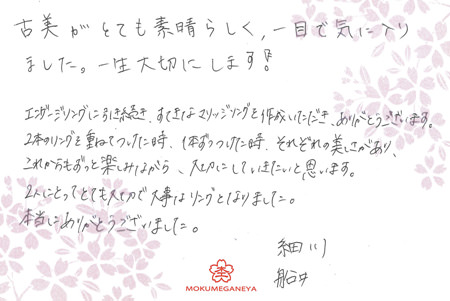 古美がとても素晴らしく、一目で気に入り
ました。一生大切にします!
エンゲージリングに引き続き、すてきなマリッジリングを作成いただき、ありがとうございます。
2本のリングを重ねてつけた時、1本ずつつけた時、それぞれの美しさがあり、
これからもずっと楽しみながら、大切にしていきたいと思います。
2人にとってとても大切で大事なリングとなりました。
本当にありがとうございました。
細川
船井
MOKUMEGANEYA